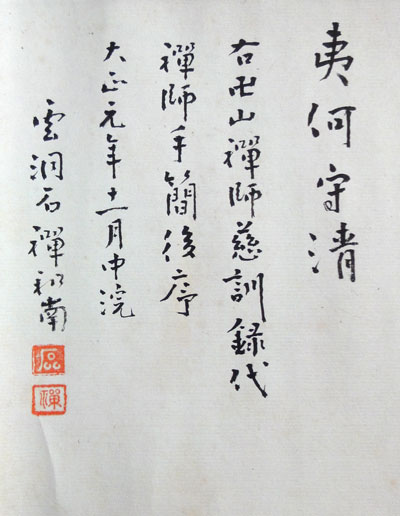 夷何守清
右卍山禪師慈訓録代
禪師手簡後序
大正元年十一月中浣
雲洞石禪和南
禪